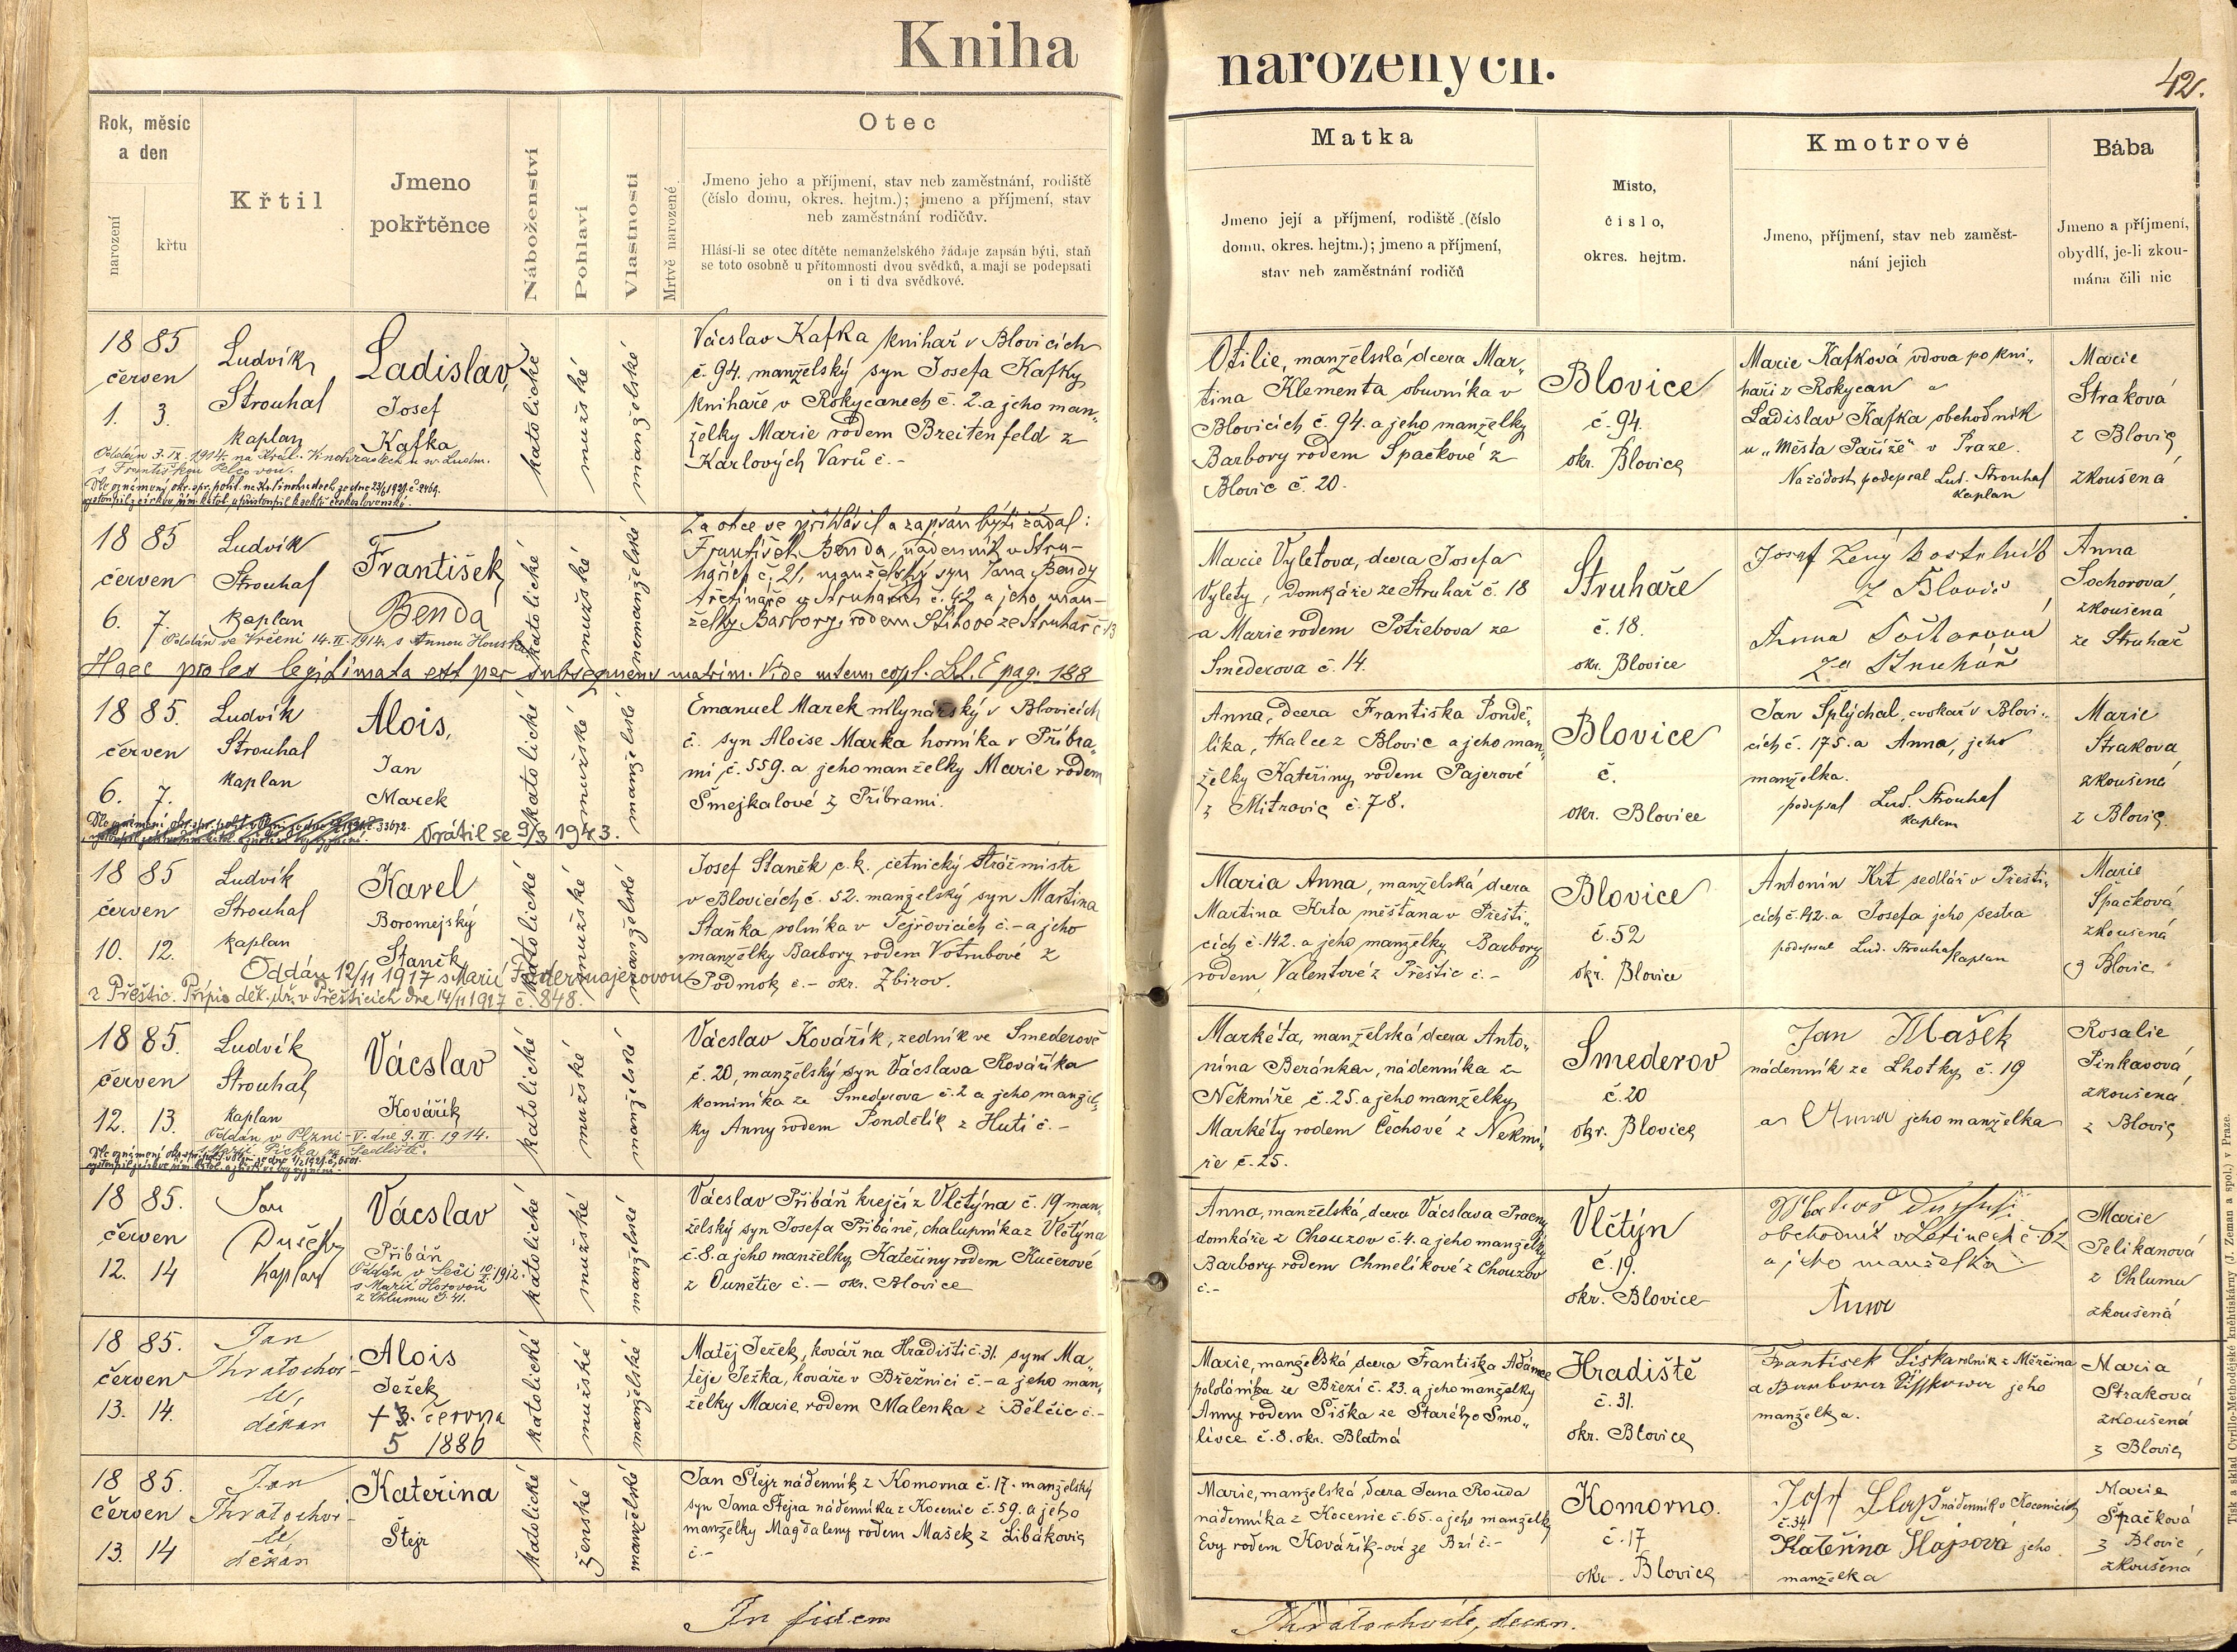 Kniha
narozených.
42.
Rok, měsíc
a den
narození
křtu
Křtil
Jmeno
pokřtěnce
Náboženství
Pohlaví
Vlastnosti
Mrtvě narozené.
Otec
Jmeno jeho a příjmení, stav neb zaměstnání, rodiště
(číslo domu, okres. hejtm.); jmeno a příjmení, stav
neb zaměstnání rodičův.
Hlásí-li se otec dítěte nemanželského žádaje zapsán býti, staň
se toto osobně u přítomnosti dvou svědků, a mají se podepsati
on i ti dva svědkové.
Matka
Jmeno její a příjmení, rodiště (číslo
domu, okres. hejtm.); jmeno a příjmení,
stav neb zaměstnání rodičů
Místo,
číslo,
okres. hejtm.
Kmotrové
Jmeno, příjmení, stav neb zaměst-
nání jejich
Bába
Jmeno a příjmení,
obydlí, je-li zkou-
mána čili nic
18 85
červen
1. 3.
Ludvík
Strouhal
kaplan
Ladislav,
Josef
Kafka
Oddán 3. IX. 1914. na Král. Vinohradech u sv. Ludm.
s Františkou Pelcovou.
katolické
mužské
manželské
Václav Kafka knihař v Blovicích
č. 94. manželský syn Josefa Kafky
knihaře v Rokycanech č. 2. a jeho man„
želky Marie rodem Breitenfeld z
Karlových Varů č. -
Otilie, manželská dcera Mar„
tina Klementa obuvníka v
Blovicích č. 94. a jeho manželky
Barbory rodem Špačkové z
Blovic č. 20.
Blovice
č. 94.
okr. Blovice
Marie Kafková vdova po kni„
haři z Rokycan a
Ladislav Kafka obchodník
u „Města Paříže" v Praze.
Na žádost podepsal Lud. Strouhal
kaplan
Marie
Straková
z Blovic
zkoušená
18 85
červen
6. 7.
Ludvík
Strouhal
kaplan
František
Benda
Oddán ve Vrčeni 14. II. 1914. s Annou Houska
katolické
mužské
nemanželské
Za otce se přihlásil a zapsán býti žádal:
František Benda, nádenník v Stru-
hařích č. 21, manželský syn Jana Bendy
třetináře v Struhařích č. 42 a jeho man-
želky Barbory, rodem Štihové ze Struhař č. 13
Haec proles legitimata est per subsequens matrim. Vide copl. Lit. E pag. 188
Marie Vyletova, dcera Josefa
Vylety, domkáře ze Struhař č. 18
a Marie rodem Potřebova ze
Smederova č. 14.
Struhaře
č. 18.
okr. Blovice
Josef Zený kostelník
z Blovic
Anna
ze Struhář
Anna
Sochorova
zkoušená
ze Struhař
18 85.
červen
6. 7.
Ludvík
Strouhal
kaplan
Alois,
Jan
Marek
Vrátil se 9/3 1943.
katolické
mužské
manželské
Emanuel Marek mlynářský v Blovicích
č. syn Aloise Marka horníka v Příbra„
mi č. 559. a jeho manželky Marie rodem
Šmejkalové z Příbrami.
Anna, dcera Františka Pondě„
líka, tkalce z Blovic a jeho man„
želky Kateřiny rodem Pajerové
z Mitrovic č. 78.
Blovice
č.
okr. Blovice
Jan Šplýchal, cvokař v Blovi„
cích č. 175. a Anna, jeho
manželka.
podepsal Lud. Strouhal
kaplan
Marie
Strakova
zkoušená
z Blovic.
18 85
červen
10. 12.
Ludvík
Strouhal
kaplan
Karel
Boromejský
Staněk
Oddán 12/11 1917 s Marií Federmajerovou
z Přeštic. Přípis děk. úř. v Přešticích dne 14/11 1917 č. 848.
katolické
mužské
manželské
Josef Staněk c. k. četnický strážmistr
v Blovicích č. 52. manželský syn Martina
Staňka rolníka v Tejřovicích č. - a jeho
manželky Barbory rodem Votrubové z
Podmok č. - okr. Zbirov.
Maria Anna, manželská dcera
Martina Krta měšťana v Přešti„
cích č. 142. a jeho manželky Barbory
rodem Valentové z Přeštic č. -
Blovice
č. 52
okr. Blovice
Antonín Krt sedlář v Přešti„
cích č. 142. a Josefa jeho sestra
podepsal Lud. Strouhal kaplan
Marie
Špačková
zkoušená
z Blovic
18 85.
červen
12. 13.
Ludvík
Strouhal
kaplan
Václav
Kovářík
Oddán v Plzni - V. dne 9. II. 1914.
katolické
mužské
manželské
Václav Kovářík, zedník ve Smederově
č. 20, manželský syn Václava Kováříka
kominíka ze Smederova č. 2 a jeho manžel„
ky Anny rodem Pondělík z Huti č. -
Markéta, manželská dcera Anto„
nína Beránka, nádenníka z
Nekmíře č. 25. a jeho manželky
Markéty rodem Čechové z Nekmí„
ře č. 25.
Smederov
č. 20
okr. Blovice
Jan Mašek
nádenník ze Lhotky č. 19
a Anna jeho manželka
Rosalie
Pinkasová
zkoušená
z Blovic
18 85.
červen
12. 14
Jan
Dušek
Kaplan
Václav
Přibáň
Oddán v Seči 1912.
s Marií Hosovou
z Chlumu č. 41.
katolické
mužské
manželské
Václav Přibáň krejčí z Vlčtýna č. 19 man„
želský syn Josefa Přibáně, chalupníka z Vlčtýna
č. 8. a jeho manželky Kateřiny rodem Kučerové
z Ounětic č. - okr. Blovice
Anna, manželská dcera Václava
domkáře z Chouzov č. 4. a jeho manželky
Barbory rodem Chmelíkové z Chouzov
č. -
Vlčtýn
č. 19.
okr. Blovice
obchodník v Letinech č. 62
a jeho manželka
Anna
Marie
Pelikanová
z Chlumu
zkoušená
18 85.
červen
13. 14.
Jan
Khratochví-
le,
děkan
Alois
Ježek
+ 3. června
5 1886
katolické
mužské
manželské
Matěj Ježek, kovář na Hradišti č. 31. syn Ma„
těje Ježka, kováře v Březnici č. - a jeho man„
želky Marie rodem Malenka z Bělčic č. -
Marie, manželská dcera Františka Adamce
pololáníka ze Březí č. 23. a jeho manželky
Anny rodem Šiška ze Starého Smo„
livce č. 8. okr. Blatná
Hradiště
č. 31.
okr. Blovice
František Liska rolník z Měrčína
a Barbora Lisskowa jeho
manželka.
Maria
Straková
zkoušená
z Blovic
18 85.
červen
13. 14
Jan
Khratochví-
le
děkan
Kateřina
Štejr
katolické
ženské
manželské
Jan Štejr nádenník z Komorna č. 17. manželský
syn Jana Štejra nádenníka z Kocenic č. 59. a jeho
manželky Magdaleny rodem Mašek z Libákovic
č. -
Marie, manželská dcera Jana Rouda
nádenníka z Kocenic č. 65. a jeho manželky
Evy rodem Kovářík-ové ze Bzí č. -
Komorno.
č. 17
okr. Blovice
nádenník v Kocenicích
č. 34.
Kateřina Šlajsová jeho
manželka
Marie
Špačková
z Blovic,
zkoušená
In fidem
Khratochvíle, decan.
Tisk a sklad Cyrillo-Methodějské knihtiskárny (J. Zeman a spol.) v Praze.